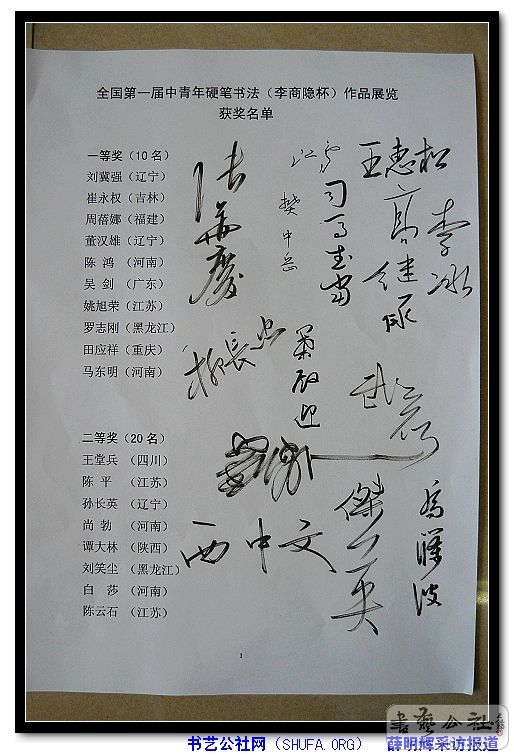 全国第一届中青年硬笔书法（李商隐杯）作品展览
获奖名单
一等奖（10名）
刘冀强（辽宁）
崔永权（吉林）
周蓓娜（福建）
董汉雄（辽宁）
陈 鸿（河南）
吴 剑（广东）
姚旭荣（江苏）
罗志刚（黑龙江）
田应祥（重庆）
马东明（河南）
二等奖（20名）
王堂兵（四川）
陈 平（江苏）
孙长英（辽宁）
尚 勃（河南）
谭大林（陕西）
刘笑尘（黑龙江）
白 莎（河南）
陈云石（江苏）
张华庆
樊中岳
司马武当
王惠松
高继承
李冰
柳长忠
西中文
1
书艺公社
书艺公社网（SHUFA.ORG） 薛明辉采访报道